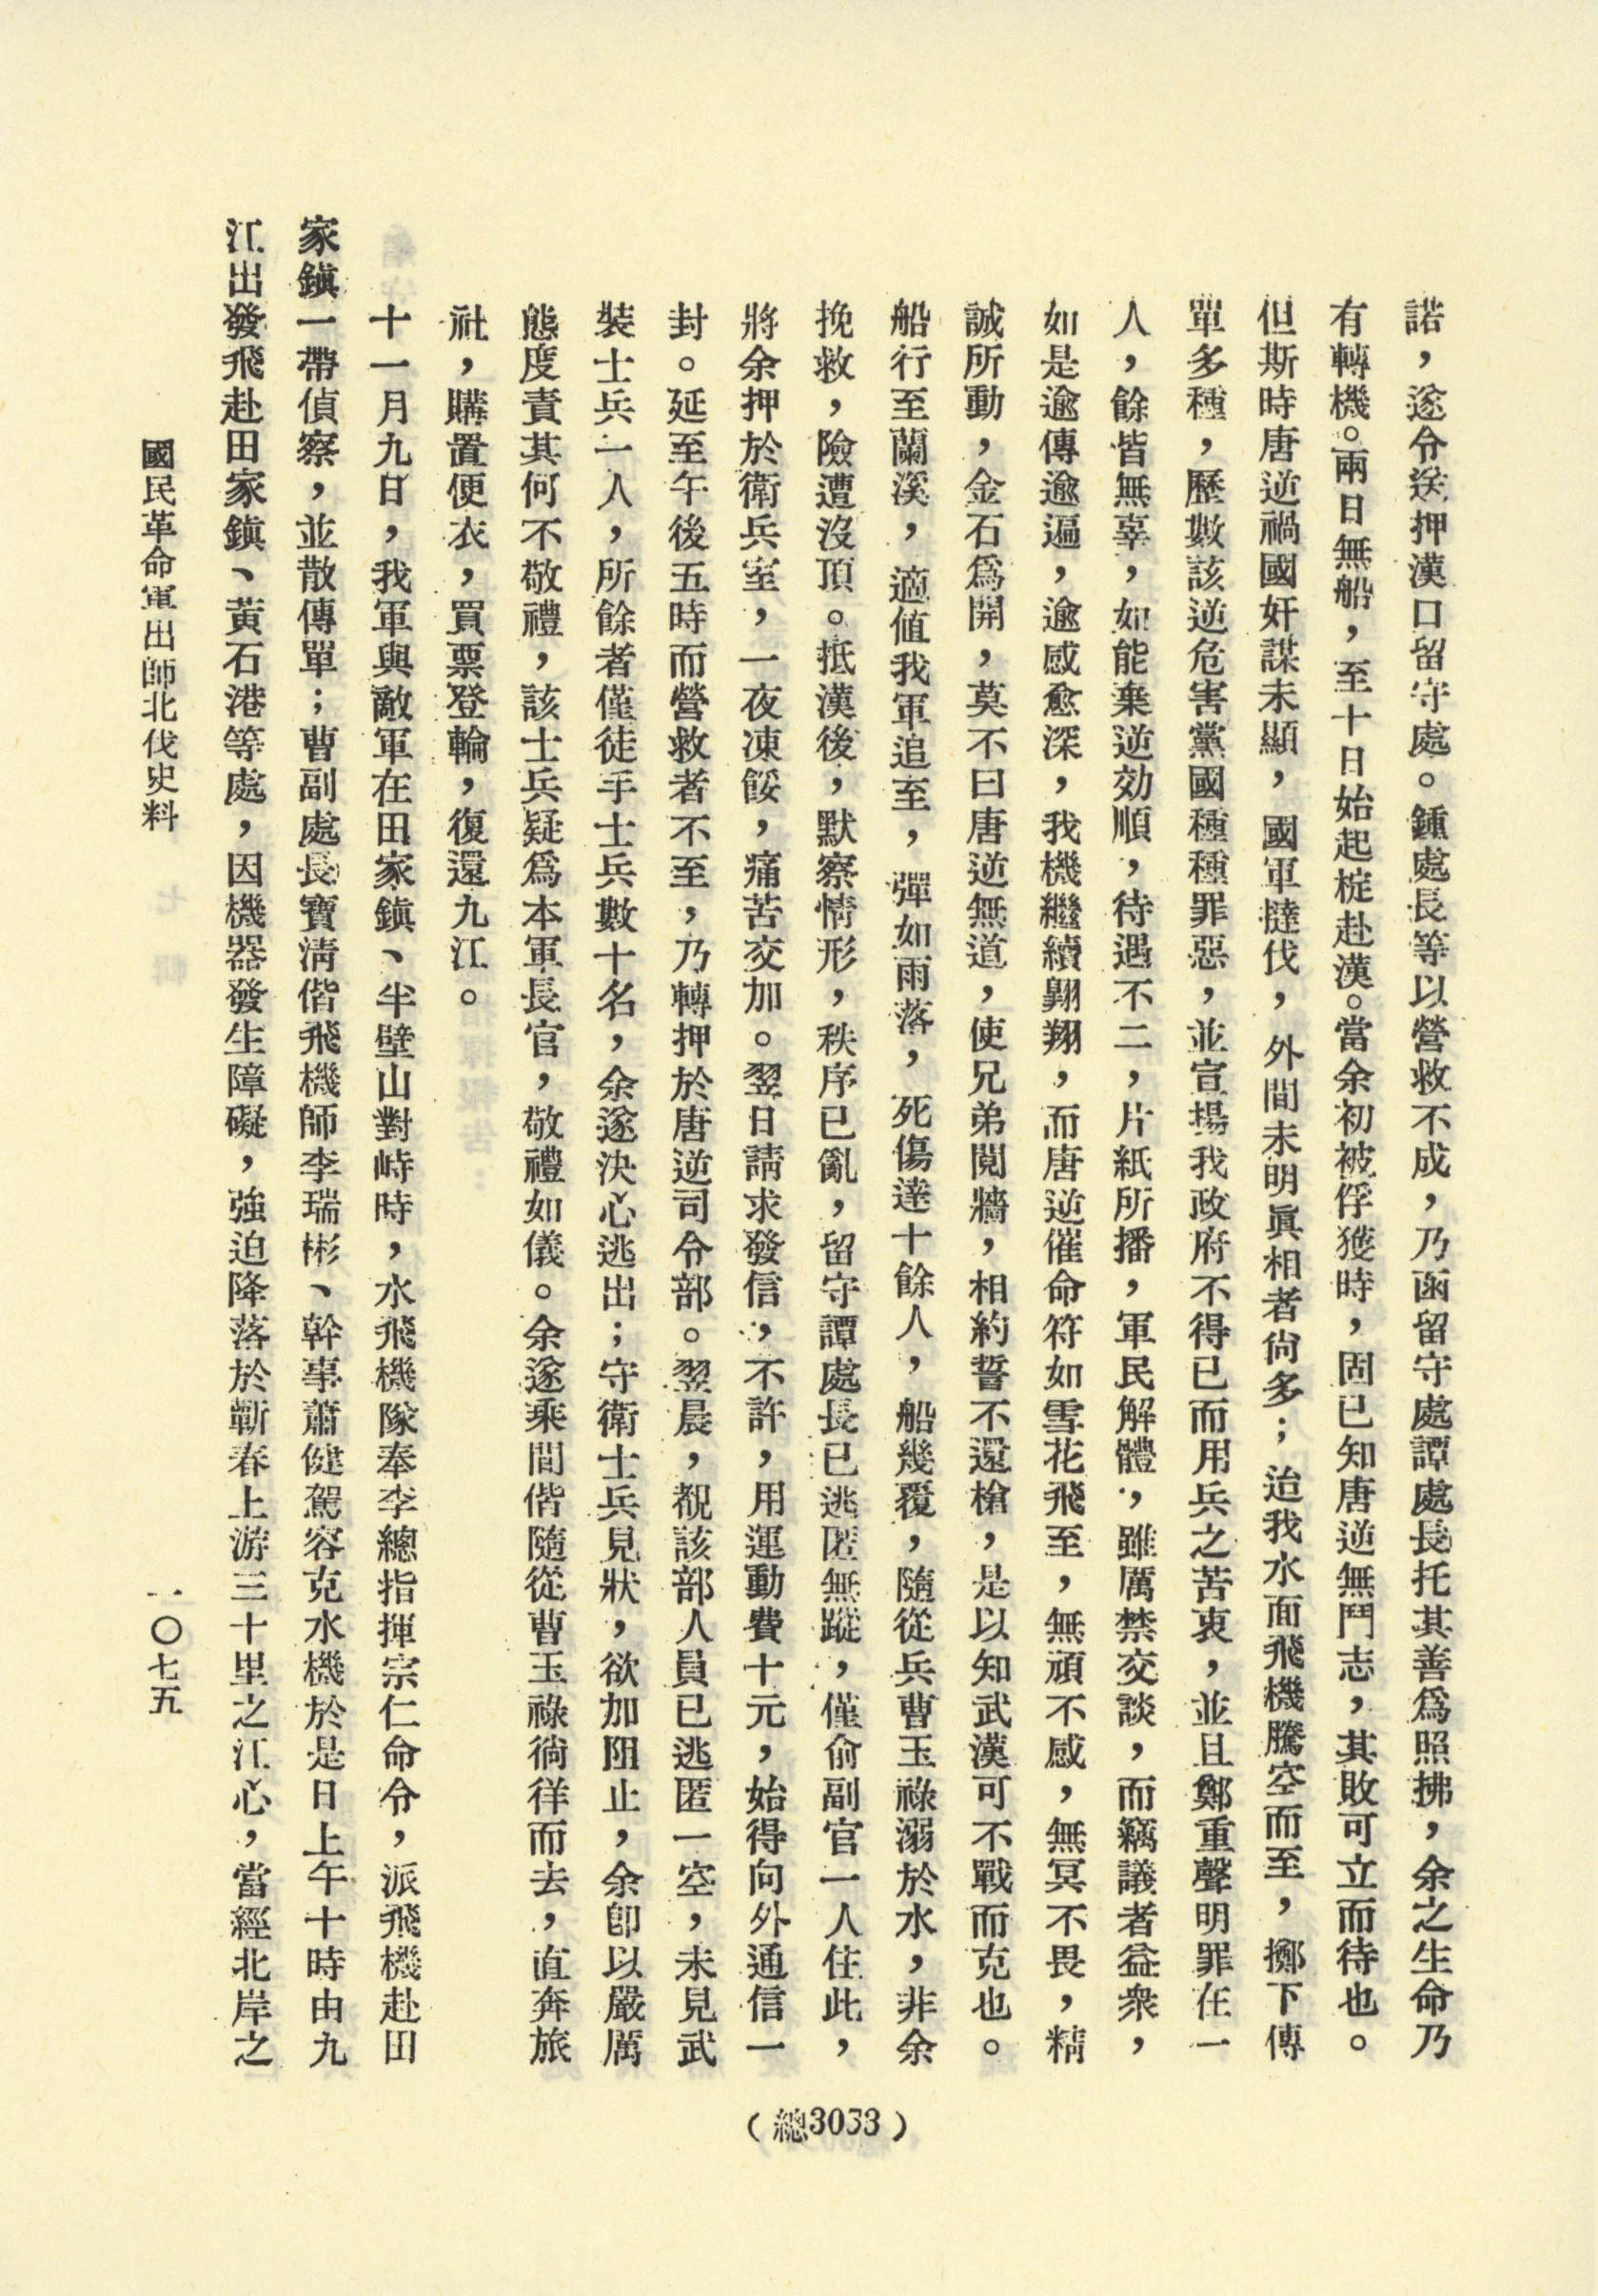 諾，遂令送押漢口留守處。鍾處長等以營救不成，乃函留守處譚處長托其善爲照拂，余之生命乃
有轉機。兩日無船，至十日始起椗赴漢。當余初被俘獲時，固已知唐逆無鬥志，其敗可立而待也。
但斯時唐逆禍國奸謀未顯，國軍撻伐，外間未明眞相者尙多；迨我水面飛機騰空而至，擲下傳
單多種，歷數該逆危害黨國種種罪惡，並宣揚我政府不得已而用兵之苦衷，並且鄭重聲明罪在一
人，餘皆無辜，如能棄逆効順，待遇不二，片紙所播，軍民解體，雖厲禁交談，而竊議者益衆，
如是逾傳逾遍，逾感愈深，我機繼續翱翔，而唐逆催命符如雪花飛至，無頑不感，無冥不畏，精
誠所動，金石爲開，莫不曰唐逆無道，使兄弟鬩牆，相約誓不還槍，是以知武漢可不戰而克也。
船行至蘭溪，適值我軍追至，彈如雨落，死傷達十餘人，船幾覆，隨從兵曹玉祿溺於水，非余
挽救，險遭沒頂。抵漢後，默察情形，秩序已亂，留守譚處長已逃匿無蹤，僅俞副官一人住此，
將余押於衛兵室，一夜凍餒，痛苦交加。翌日請求發信，不許，用運動費十元，始得向外通信一
封。延至午後五時而營救者不至，乃轉押於唐逆司令部。翌晨，覩該部人員已逃匿一空，未見武
裝士兵一人，所餘者僅徒手士兵數十名，余遂決心逃出；守衛士兵見狀，欲加阻止，余卽以嚴厲
態度責其何不敬禮，該士兵疑爲本軍長官，敬禮如儀。余遂乘間偕隨從曹玉祿徜徉而去，直奔旅
社，購置便衣，買票登輪，復還九江。
十一月九日，我軍與敵軍在田家鎭、半壁山對峙時，水飛機隊奉李總指揮宗仁命令，派飛機赴田
家鎭一帶偵察，並散傳單；曹副處長寶淸偕飛機師李瑞彬、幹事蕭健駕容克水機於是日上午十時由九
江出發飛赴田家鎭、黃石港等處，因機器發生障礙，強迫降落於蘄春上游三十里之江心，當經北岸之
國民革命軍出師北伐史料
一〇七五
（總3033）